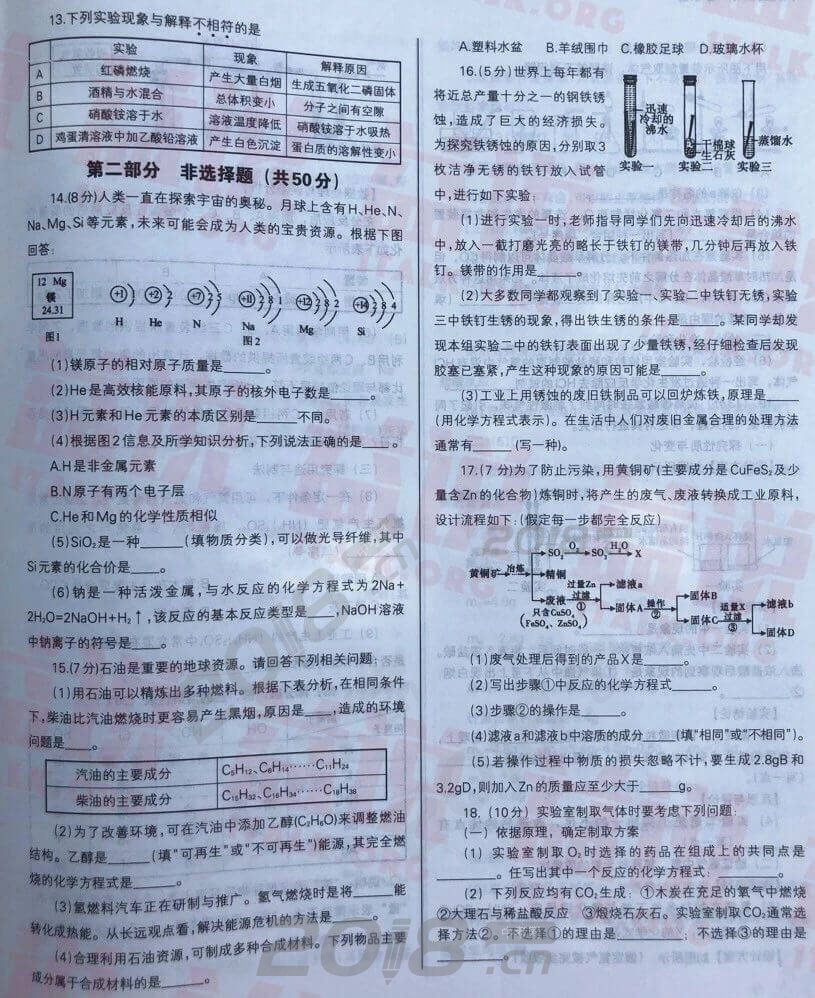 13.下列实验现象与解释不相符的是
实验 现象 解释原因
A 红磷燃烧 产生大量白烟 生成五氧化二磷固体
B 酒精与水混合 总体积变小 分子之间有空隙
C 硝酸铵溶于水 溶液温度降低 硝酸铵溶于水吸热
D 鸡蛋清溶液中加乙酸铅溶液 产生白色沉淀 蛋白质的溶解性变小
第二部分 非选择题(共50分)
14.(8分)人类一直在探索宇宙的奥秘。月球上含有H、He、N、
Na、Mg、Si等元素,未来可能会成为人类的宝贵资源。根据下图
回答:
12 Mg
镁
24.31
图1
+1 1 +2 2 +7 2 5 +11 2 8 1 +12 2 8 2 +14 2 8 4
H He N Na Mg Si
图2
(1)镁原子的相对原子质量是____。
(2)He是高效核能原料,其原子的核外电子数是____。
(3)H元素和He元素的本质区别是____不同。
(4)根据图2信息及所学知识分析,下列说法正确的是____。
A.H是非金属元素
B.N原子有两个电子层
C.He和Mg的化学性质相似
(5)SiO₂是一种____(填物质分类),可以做光导纤维,其中
Si元素的化合价是____。
(6)钠是一种活泼金属,与水反应的化学方程式为2Na+
2H₂O=2NaOH+H₂↑,该反应的基本反应类型是____,NaOH溶液
中钠离子的符号是____。
15.(7分)石油是重要的地球资源。请回答下列相关问题:
(1)用石油可以精炼出多种燃料。根据下表分析,在相同条件
下,柴油比汽油燃烧时更容易产生黑烟,原因是____,造成的环境
问题是____。
汽油的主要成分 C₅H₁₂、C₆H₁₄……C₁₁H₂₄
柴油的主要成分 C₁₅H₃₂、C₁₆H₃₄……C₁₈H₃₈
(2)为了改善环境,可在汽油中添加乙醇(C₂H₆O)来调整燃油
结构。乙醇是____(填“可再生”或“不可再生”)能源,其完全燃
烧的化学方程式是____。
(3)氢燃料汽车正在研制与推广。氢气燃烧时是将____能
转化成热能。从长远观点看,解决能源危机的方法是____。
(4)合理利用石油资源,可制成多种合成材料。下列物品主要
成分属于合成材料的是____。
A.塑料水盆 B.羊绒围巾 C.橡胶足球 D.玻璃水杯
16.(5分)世界上每年都有
将近总产量十分之一的钢铁锈
蚀,造成了巨大的经济损失。
为探究铁锈蚀的原因,分别取3
枚洁净无锈的铁钉放入试管
中,进行如下实验:
迅速
冷却的
沸水
干棉球
生石灰
蒸馏水
实验一 实验二 实验三
(1)进行实验一时,老师指导同学们先向迅速冷却后的沸水
中,放入一截打磨光亮的略长于铁钉的镁带,几分钟后再放入铁
钉。镁带的作用是____。
(2)大多数同学都观察到了实验一、实验二中铁钉无锈,实验
三中铁钉生锈的现象,得出铁生锈的条件是____。某同学却发
现本组实验二中的铁钉表面出现了少量铁锈,经仔细检查后发现
胶塞已塞紧,产生这种现象的原因可能是____。
(3)工业上用锈蚀的废旧铁制品可以回炉炼铁,原理是____
(用化学方程式表示)。在生活中人们对废旧金属合理的处理方法
通常有____(写一种)。
17.(7分)为了防止污染,用黄铜矿(主要成分是CuFeS₂及少
量含Zn的化合物)炼铜时,将产生的废气、废液转换成工业原料,
设计流程如下:(假定每一步都完全反应)
SO₂ O₂ SO₃ H₂O X
黄铜矿 冶炼 精铜
废液 过量Zn 过滤 ① 滤液a
只含CuSO₄
(FeSO₄、ZnSO₄)
固体A 操作 ② 固体B
固体C 适量X 过滤 ③ 滤液b
固体D
(1)废气处理后得到的产品X是____。
(2)写出步骤①中反应的化学方程式____。
(3)步骤②的操作是____。
(4)滤液a和滤液b中溶质的成分____(填“相同”或“不相同”)。
(5)若操作过程中物质的损失忽略不计,要生成2.8gB和
3.2gD,则加入Zn的质量应至少大于____g。
18.(10分)实验室制取气体时要考虑下列问题:
(一)依据原理,确定制取方案
(1)实验室制取O₂时选择的药品在组成上的共同点是
____。任写出其中一个反应的化学方程式:____。
(2)下列反应均有CO₂生成:①木炭在充足的氧气中燃烧
②大理石与稀盐酸反应 ③煅烧石灰石。实验室制取CO₂通常选
择方法②。不选择①的理由是____;不选择③的理由是
____。
2018.cn